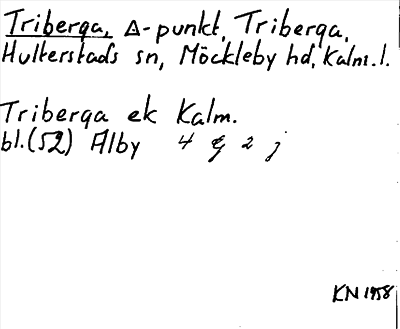 Triberga, Δ-punkt, Triberga,
Hulterstads sn, Möckleby hd, Kalm. l.
Triberga ek Kalm.
bl. (52) Alby 4 G 2 j
KN 1958